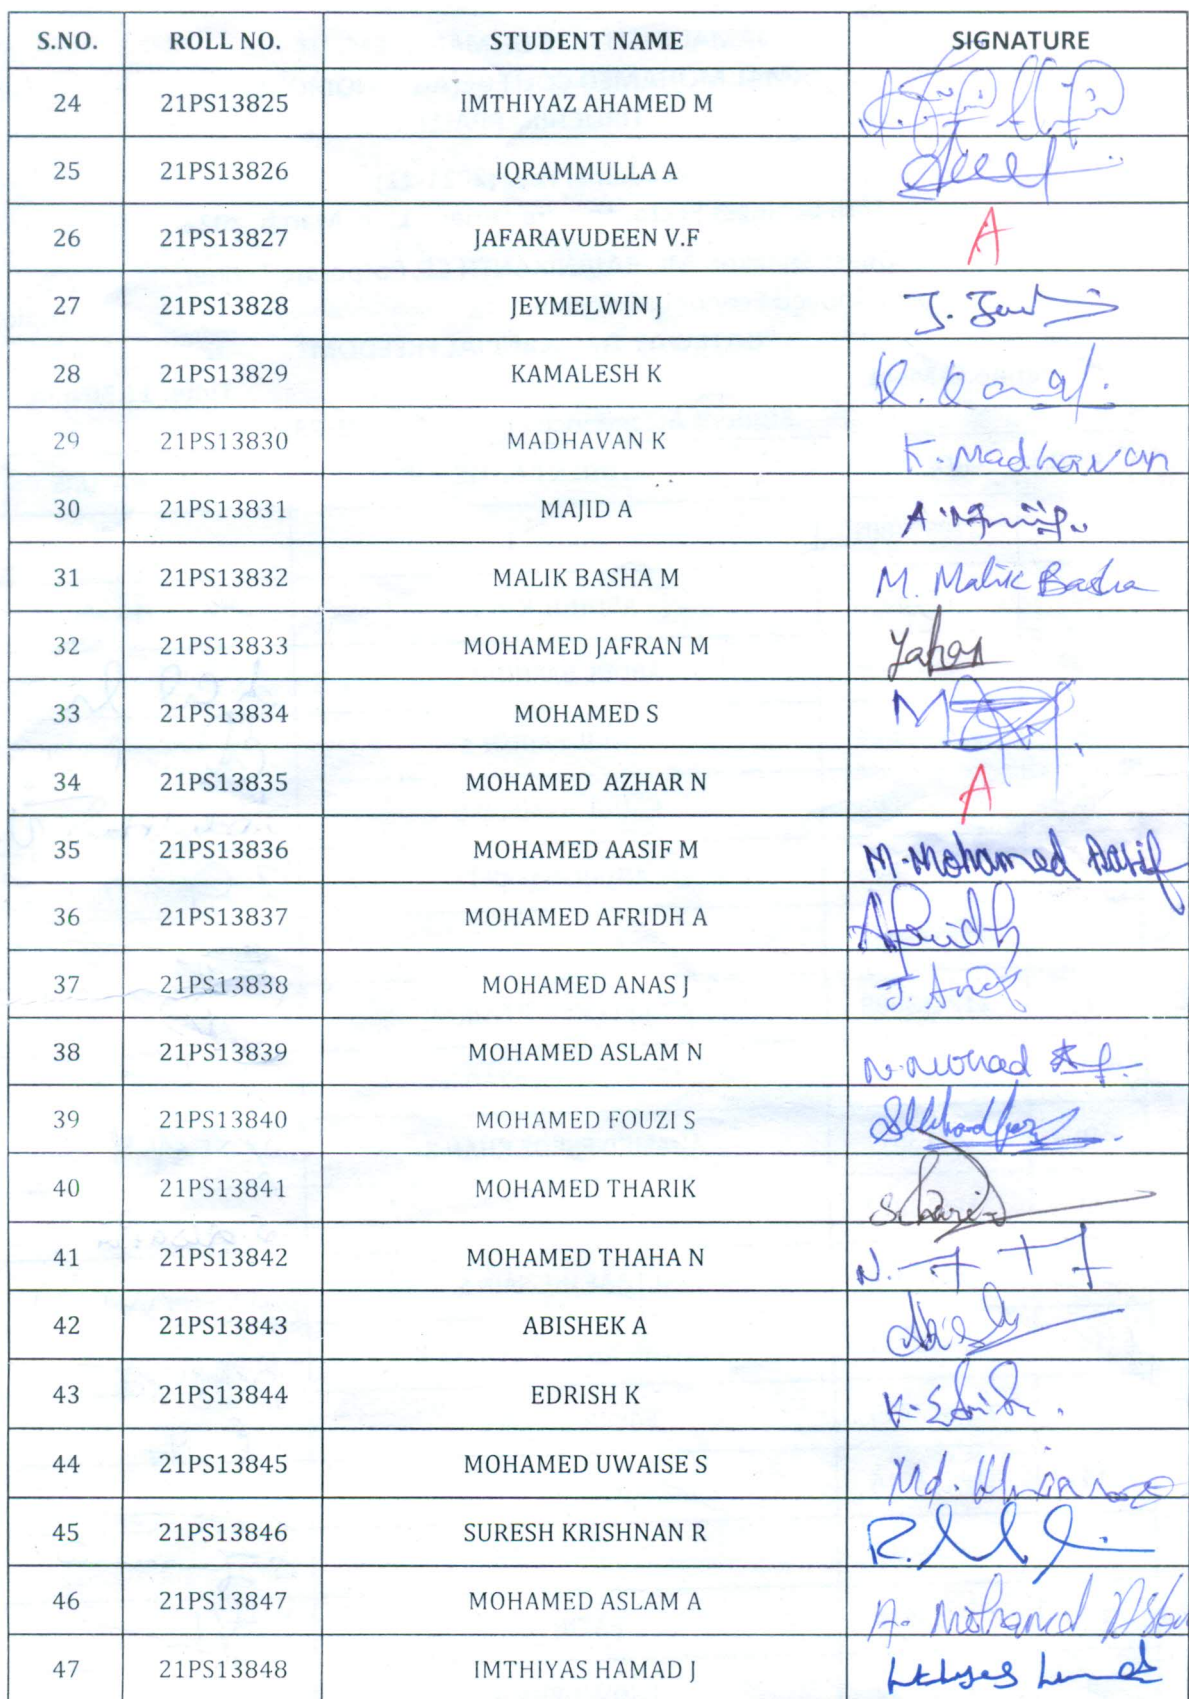 S.NO. ROLL NO. STUDENT NAME SIGNATURE
24 21PS13825 IMTHIYAZ AHAMED M
25 21PS13826 IQRAMMULLA A
26 21PS13827 JAFARAVUDEEN V.F A
27 21PS13828 JEYMELWIN J
28 21PS13829 KAMALESH K
29 21PS13830 MADHAVAN K K. Madhavan
30 21PS13831 MAJID A
31 21PS13832 MALIK BASHA M M. Malik Basha
32 21PS13833 MOHAMED JAFRAN M
33 21PS13834 MOHAMED S
34 21PS13835 MOHAMED AZHAR N A
35 21PS13836 MOHAMED AASIF M M. Mohamed Aasif
36 21PS13837 MOHAMED AFRIDH A Afridh
37 21PS13838 MOHAMED ANAS J J. Anas
38 21PS13839 MOHAMED ASLAM N
39 21PS13840 MOHAMED FOUZI S
40 21PS13841 MOHAMED THARIK
41 21PS13842 MOHAMED THAHA N
42 21PS13843 ABISHEK A
43 21PS13844 EDRISH K
44 21PS13845 MOHAMED UWAISE S
45 21PS13846 SURESH KRISHNAN R
46 21PS13847 MOHAMED ASLAM A A. Mohamed
47 21PS13848 IMTHIYAS HAMAD J